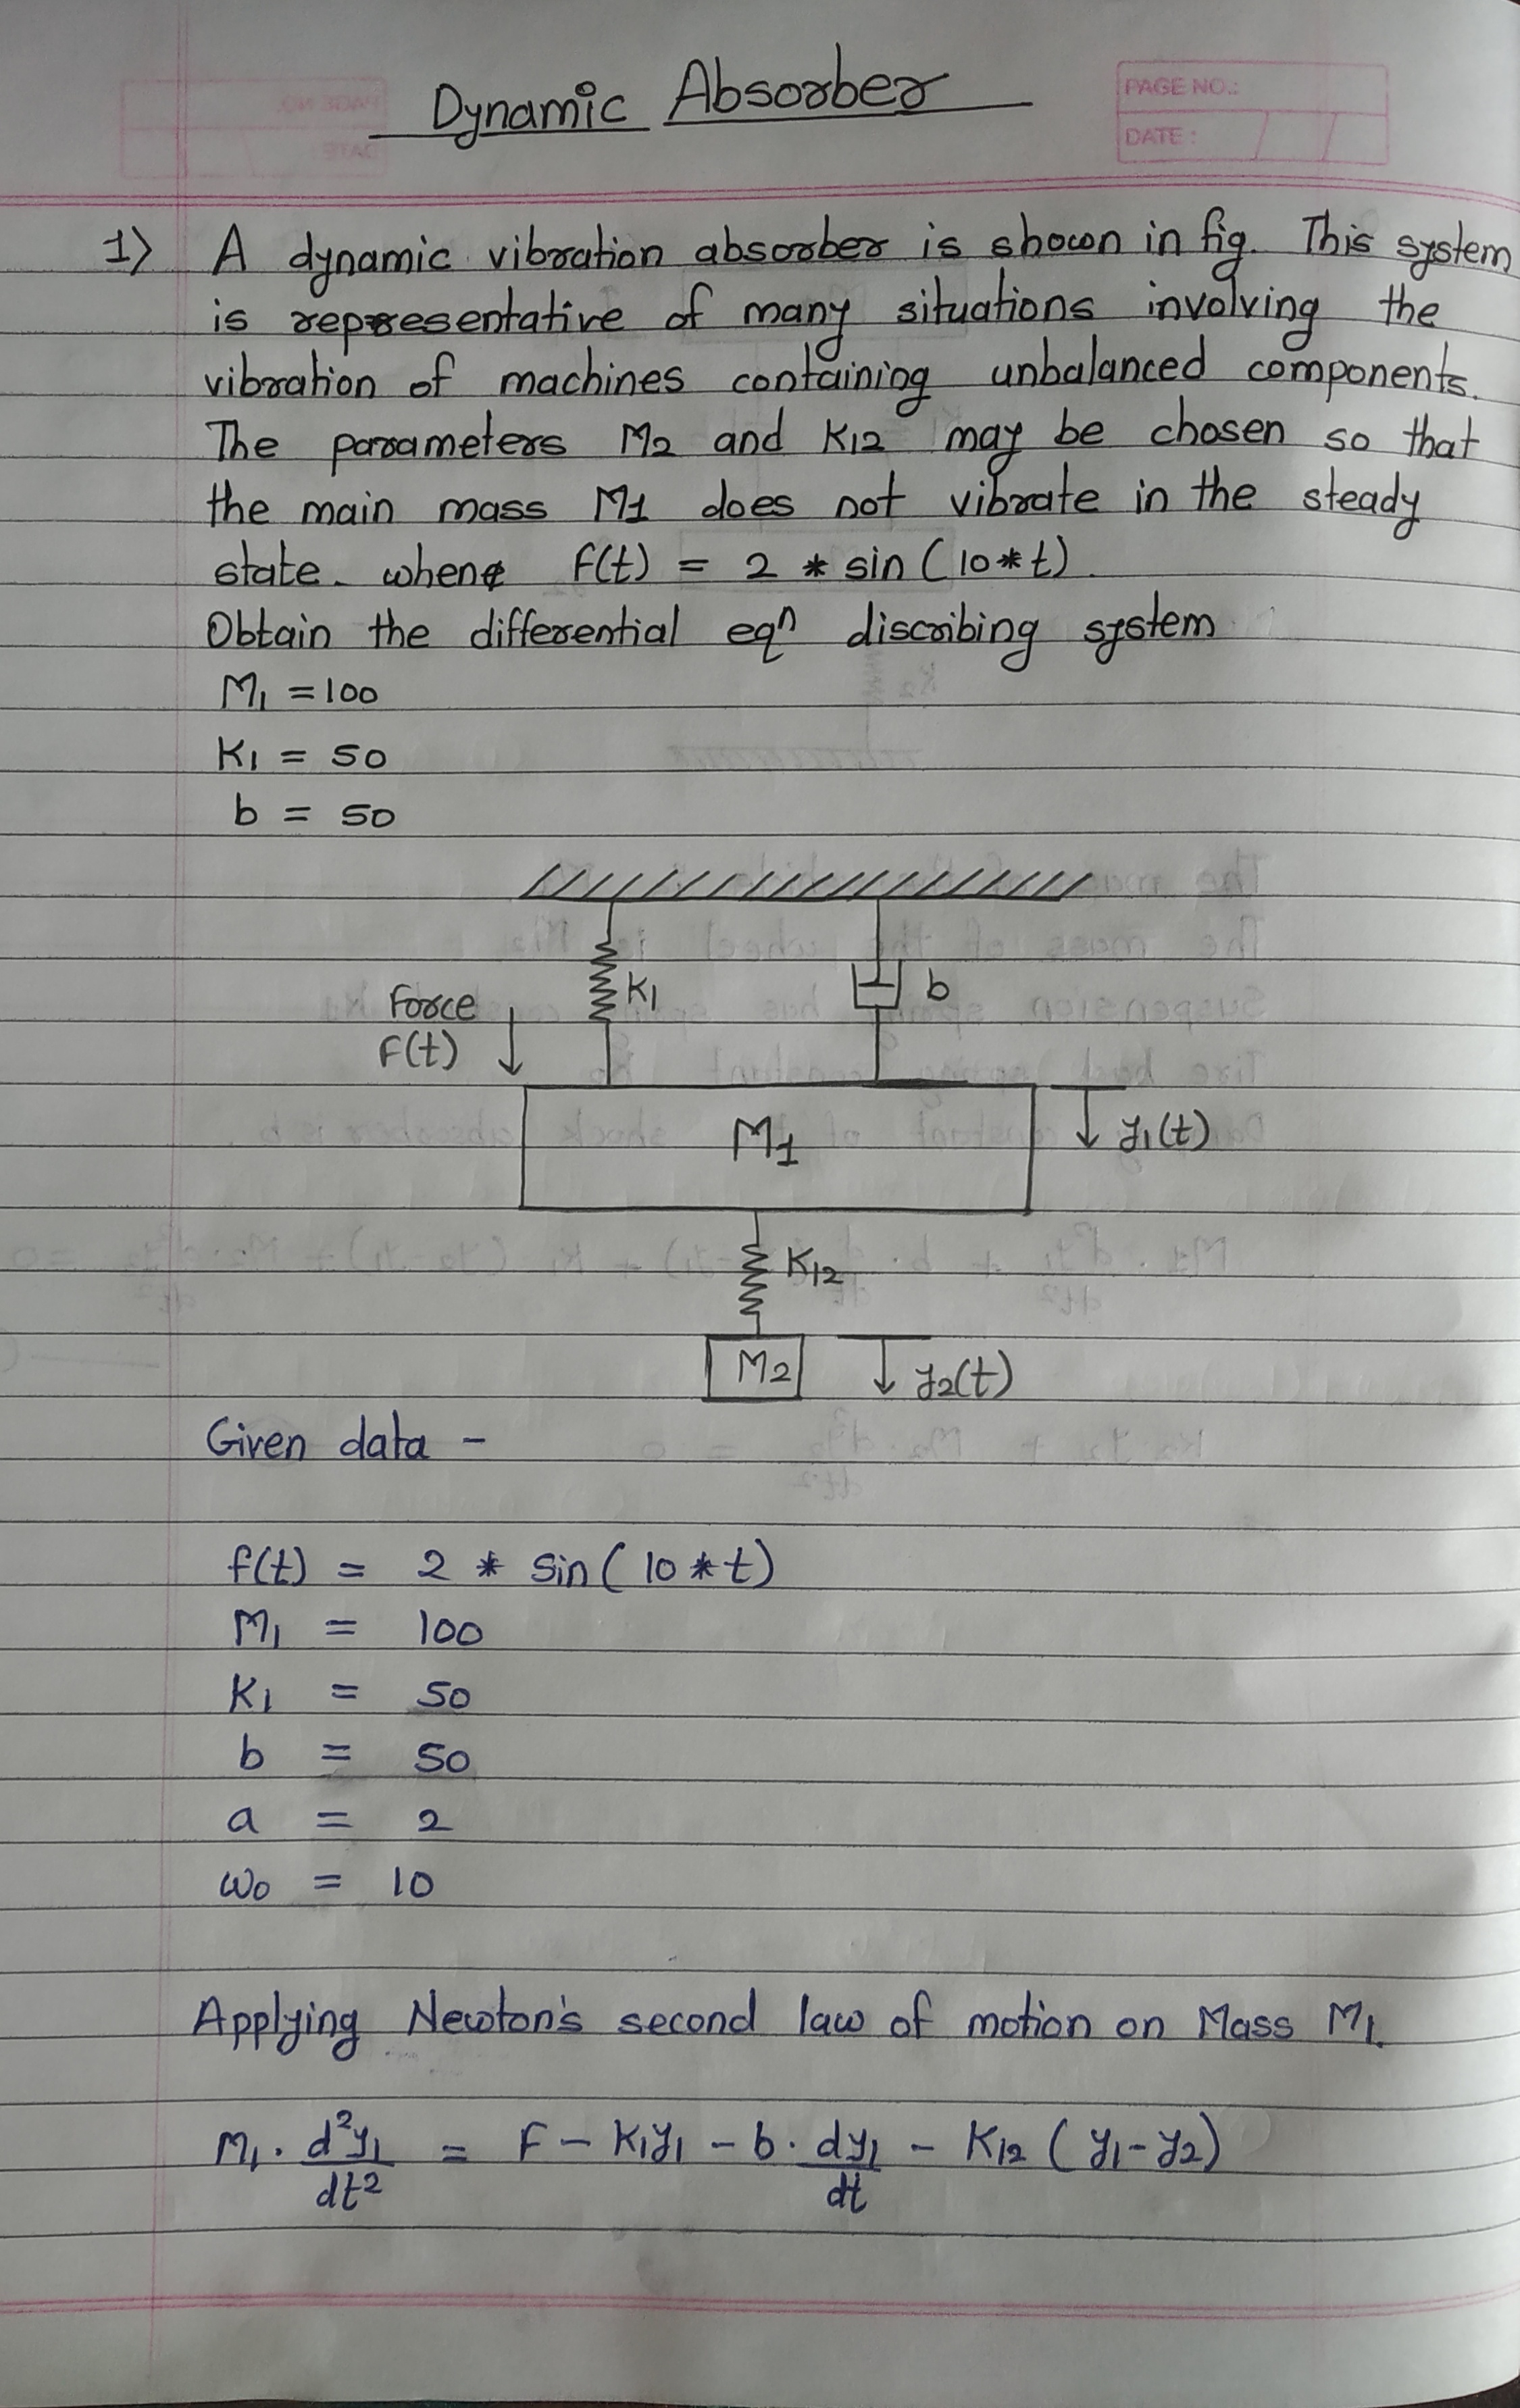 Dynamic Absorber
PAGE NO.:
DATE :
1) A dynamic vibration absorber is shown in fig. This system
is representative of many situations involving the
vibration of machines containing unbalanced components.
The parameters M2 and K12 may be chosen so that
the main mass M1 does not vibrate in the steady
state. when F(t) = 2 * sin ( 10 * t ).
Obtain the differential eqⁿ discribing system
M₁ = 100
K₁ = 50
b = 50
K₁
b
Force
F(t)
M1
y₁(t)
K₁₂
M2
y₂(t)
Given data -
f(t) = 2 * Sin ( 10 * t )
M₁ = 100
K₁ = 50
b = 50
a = 2
ω₀ = 10
Applying Newton's second law of motion on Mass M₁.
M₁ . d²y₁/dt² = F - K₁y₁ - b . dy₁/dt - K₁₂ ( y₁ - y₂ )